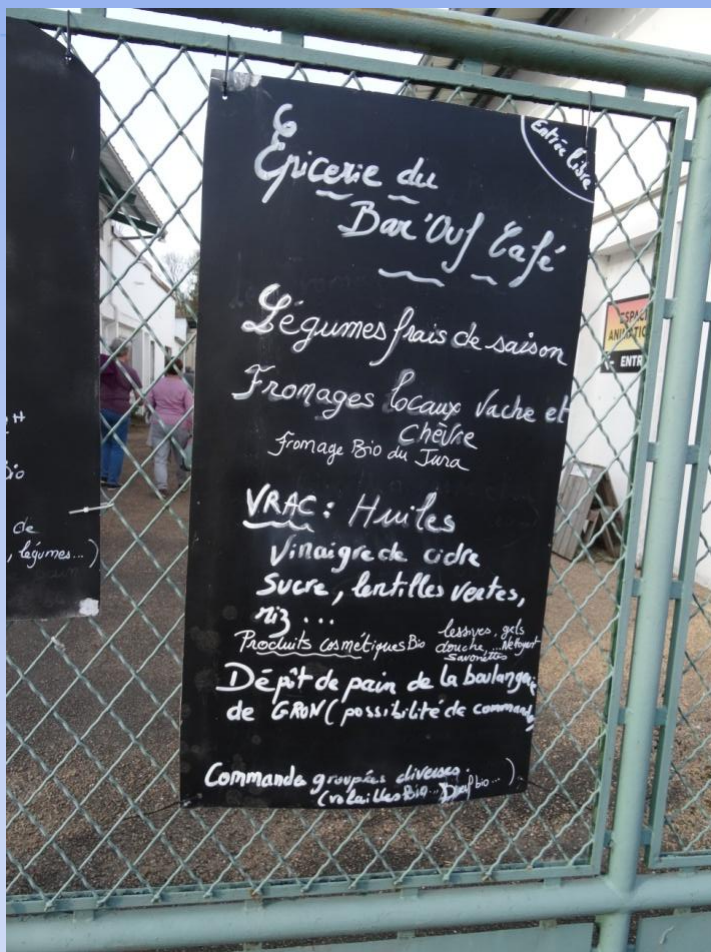 Entrée libre
Épicerie du
Bar'Ouf Café
Légumes frais de saison
Fromages locaux Vache et
Chèvre
Fromage Bio du Jura
VRAC : Huiles
Vinaigre de cidre
Sucre, lentilles vertes,
riz ...
Produits cosmétiques Bio lessives, gels
douche, ... Nettoyant
savonnettes
Dépôt de pain de la boulangerie
de GRON (possibilité de commande
Commande groupées diverses.
(volailles Bio ... bio ...)
ESPAC
ANIMATIO
← ENTR
Bio
de
, légumes...)